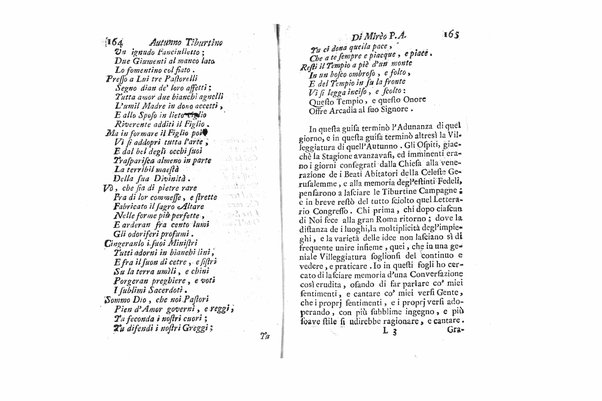 164 Autunno Tiburtino
Un ignudo Fanciulletto;
Due Giumenti al manco lato
Lo fomentino col fiato.
Presso a Lui tre Pastorelli
Segno dian de' loro affetti;
Tutta amor due bianchi agnelli
L'umil Madre in dono accetti,
E allo Sposo in lieto ciglio
Riverente additi il Figlio.
Ma in formare il Figlio poi
Vi si addopri tutta l'arte,
E dal bel degli occhi suoi
Trasparisca almeno in parte
La terribil maestà
Della sua Divinità.
Vò, che sia di pietre rare
Pra di lor commesse, e strette
Fabricato il sagro Altare
Nelle forme più perfette,
E arderan fra cento lumi
Gli odoriferi profumi.
Cingeranlo i suoi Ministri
Tutti adorni in bianchi lini,
E fra il suon di cetre, e sistri
Su la terra umìli, e chini
Porgeran preghiere, e voti
I sublimi Sacerdoti.
Sommo Dio, che noi Pastori
Pien d'Amor governi, e reggi,
Tu feconda i nostri cuori;
Tu difendi i nostri Greggi;
Tu
Di Mirèo P.A. 165
Tu ci dona quella pace,
Che a te sempre e piacque, e piace.
Resti il Tempio a piè d'un monte
In un bosco ombroso, e folto,
E del Tempio in su la fronte
Vi si legga inciso, e scolto:
Questo Tempio, e questo Onore
Offre Arcadia al suo Signore.
In questa guisa terminò l'Adunanza di quel
giorno, e in questa guisa terminò altresì la Vil-
leggiatura di quell'Autunno. Gli Ospiti, giac-
chè la Stagione avanzavasi, ed imminenti era-
no i giorni consegrati dalla Chiesa alla vene-
razione de i Beati Abitatori della Celeste Ge-
rusalemme, e alla memoria degl'estinti Fedeli,
pensarono a lasciare le Tiburtine Campagne;
e in breve restò del tutto sciolto quel Lettera-
rio Congresso. Chi prima, chi dopo ciascun
di Noi fece alla gran Roma ritorno; dove la
distanza de i luoghi, la moltiplicità degl'impie-
ghi, e la varietà delle idee non lasciano sì di
frequente unire insieme, quei, che in una ge-
niale Villeggiatura soglionsi del continuo e
vedere, e praticare. Io in questi fogli ho cer-
cato di lasciare memoria d'una Conversazione
così erudita, osando di far parlare co' miei
sentimenti, e cantare co' miei versi Gente,
che i proprj sentimenti, e i proprj versi ado-
perando, con più subblime ingegno, e più
soave stile si udirebbe ragionare, e cantare.
L 3 Gra-